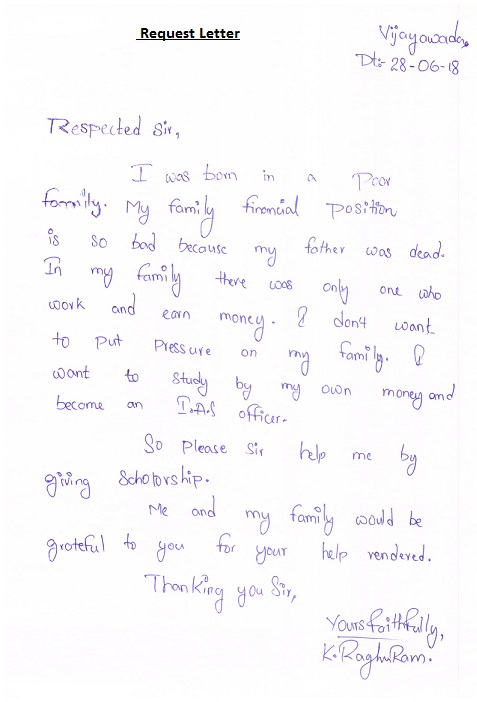 Request Letter
Vijayawada,
Dt:- 28-06-18
Respected Sir,
I was born in a Poor
family. My family financial position
is so bad because my father was dead.
In my family there was only one who
work and earn money. I don't want
to put pressure on my family. I
want to study by my own money and
become an I.A.S officer.
So please sir help me by
giving scholorship.
Me and my family would be
grateful to you for your help rendered.
Thanking you Sir,
Yours faithfully,
K. Raghu Ram.